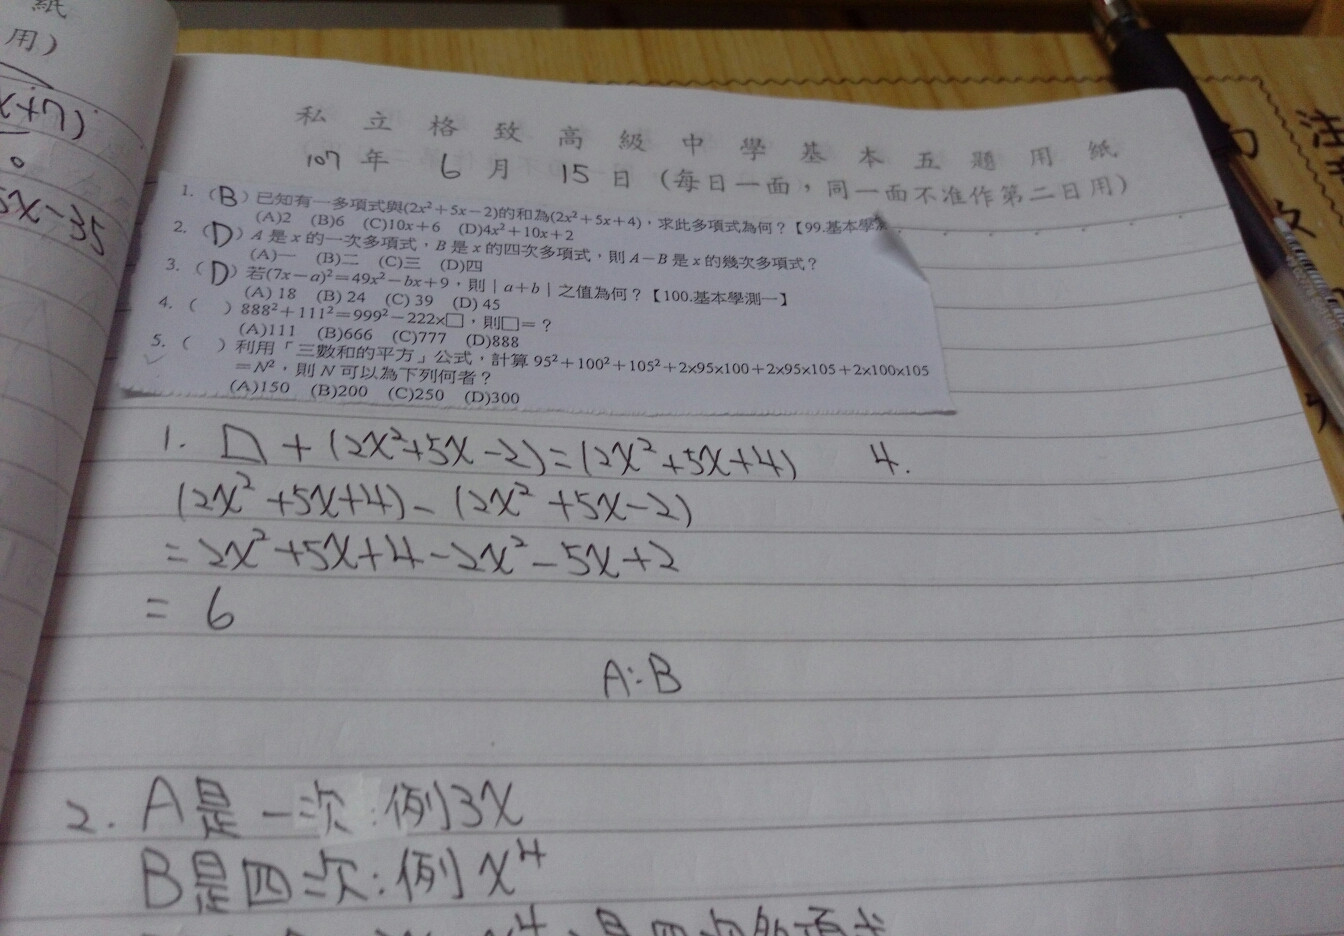 紙
用)
x+7)
5x-35
私立格致高級中學基本五題用紙
107年 6月 15日(每日一面，同一面不准作第二日用)
1.(B)已知有一多項式與(2x²+5x−2)的和為(2x²+5x+4)，求此多項式為何？【99.基本學測
(A)2 (B)6 (C)10x+6 (D)4x²+10x+2
2.(D)A是x的一次多項式，B是x的四次多項式，則A−B是x的幾次多項式？
(A)一 (B)二 (C)三 (D)四
3.(D)若(7x−a)²=49x²−bx+9，則|a+b|之值為何？【100.基本學測一】
(A) 18 (B) 24 (C) 39 (D) 45
4.( )888²+111²=999²−222×□，則□=？
(A)111 (B)666 (C)777 (D)888
5.( )利用「三數和的平方」公式，計算 95²+100²+105²+2×95×100+2×95×105+2×100×105
=N²，則N可以為下列何者？
(A)150 (B)200 (C)250 (D)300
1. □+(2x²+5x-2)=(2x²+5x+4) 4.
(2x²+5x+4)-(2x²+5x-2)
=2x²+5x+4-2x²-5x+2
=6
A:B
2. A是一次:例3x
B是四次:例x⁴